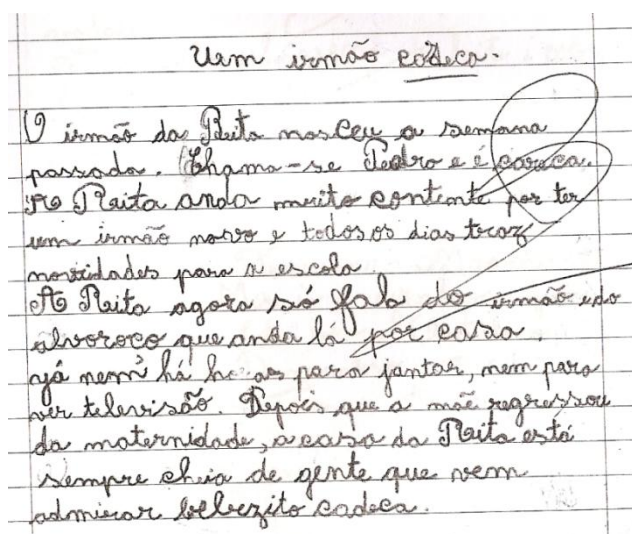 Uem irmão codeca.
O irmão da Reita nasceu a semana
passada. Chama-se Pedro e é careca.
A Raita anda muito contente por ter
um irmão novo e todos os dias traz
novidades para a escola
A Reita agora só fala do irmão e do
alvoroço que anda lá por casa.
já nem há horas para jantar, nem para
ver televisão. Depois que a mãe regressou
da maternidade, a casa da Raita está
sempre cheia de gente que vem
admirar bebezito cadeca.